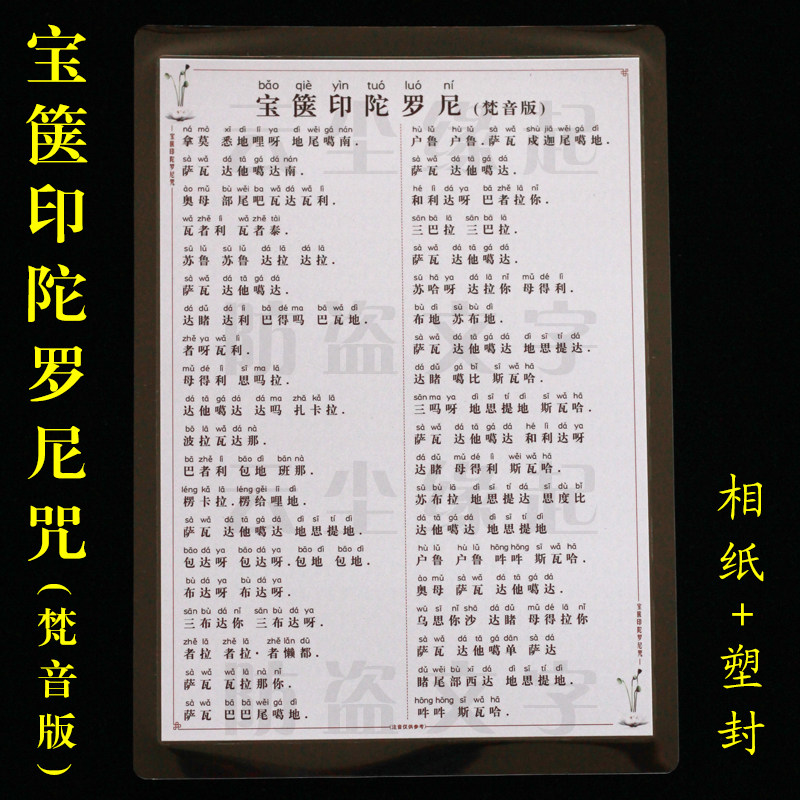 宝箧印陀罗尼咒(梵音版)
bǎo qiè yìn tuó luó ní
宝箧印陀罗尼(梵音版)
宝箧印陀罗尼咒
ná mò xī dì lī ya dì wěi gá nán
拿莫 悉地哩呀 地尾噶南.
sà wǎ dá tā gá dá nán
萨瓦 达他噶达南.
ào mǔ bù wěi ba wǎ dá wǎ lì
奥母 部尾吧瓦达瓦利.
wǎ zhě lì wǎ zhě tài
瓦者利 瓦者泰.
sū lǔ sū lǔ dá lā dá lā
苏鲁 苏鲁 达拉 达拉.
sà wǎ dá tā gá dá
萨瓦 达他噶达.
dá dǔ dá lì bā dé ma bā wǎ dì
达赌 达利 巴得吗 巴瓦地.
zhě ya wǎ lì
者呀瓦利.
mǔ dé lì sī ma lā
母得利 思吗拉.
dá tā gá dá dá ma zhā kǎ lā
达他噶达 达吗 扎卡拉.
bō lā wǎ dá nà
波拉瓦达那.
bā zhě lì bāo dì bān nà
巴者利 包地 班那.
léng kǎ lā léng gěi lī dì
楞卡拉.楞给哩地.
sà wǎ dá tā gá dá dì sī tí dì
萨瓦 达他噶达 地思提地.
bāo dá ya bāo dá ya bāo dì bāo dì
包达呀 包达呀.包地 包地.
bù dá ya bù dá ya
布达呀 布达呀.
sān bù dá nǐ sān bù dá ya
三布达你 三布达呀.
zhě lā zhě lā zhě lǎn dū
者拉 者拉.者懒都.
sà wǎ wǎ lā nà nǐ
萨瓦 瓦拉那你.
萨瓦 巴巴尾噶地.
hù lǔ hù lǔ sà wǎ shù jiā wěi gá dì
户鲁 户鲁.萨瓦 戍迦尾噶地.
sà wǎ dá tā gá dá
萨瓦 达他噶达.
hé lì dá ya bā zhě lā nǐ
和利达呀 巴者拉你.
sān bā lā sān bā lā
三巴拉 三巴拉.
sà wǎ dá tā gá dá
萨瓦 达他噶达.
sū hā ya dá lā nǐ mǔ dé lì
苏哈呀 达拉你 母得利.
bù dì sū bù dì
布地 苏布地.
sà wǎ dá tā gá dá dì sī tí dá
萨瓦 达他噶达 地思提达.
dá dǔ gá bǐ sī wǎ hā
达赌 噶比 斯瓦哈.
sān ma ya dì sī tí dì sī wǎ hā
三吗呀 地思提地 斯瓦哈.
sà wǎ dá tā gá dá hé lì dá ya
萨瓦 达他噶达 和利达呀
dá dǔ mǔ dé lì sī wǎ hā
达赌 母得利 斯瓦哈.
sū bù lā dì sī tí dá sī dù bǐ
苏布拉 地思提达 思度比
dá tā gá dá dì sī tí dì
达他噶达 地思提地
hù lǔ hù lǔ hōng hōng sī wǎ hā
户鲁 户鲁 吽吽 斯瓦哈.
ào mǔ sà wǎ dá tā gá dá
奥母 萨瓦 达他噶达.
wū sī nǐ shā dá dǔ mǔ dé lā nǐ
乌思你沙 达赌 母得拉你
sà wǎ dá tā gá dān sà dá
萨瓦 达他噶单 萨达
dǔ wěi bù xī dá dì sī tí dì
赌尾部西达 地思提地.
hōng hōng sī wǎ hā
吽吽 斯瓦哈.
宝箧印陀罗尼咒
(注音仅供参考)
六尘缘起
防盗文字
六尘缘起
防盗文字
相纸+塑封